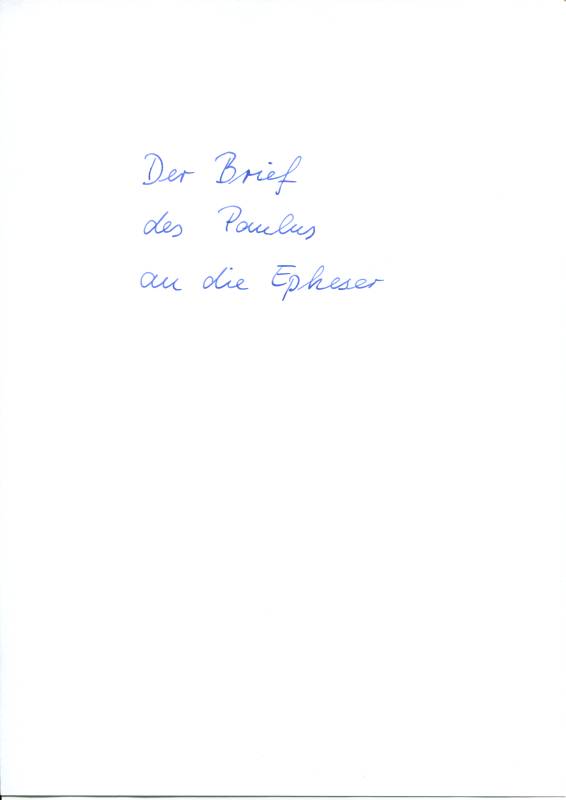 Der Brief
des Paulus
an die Epheser